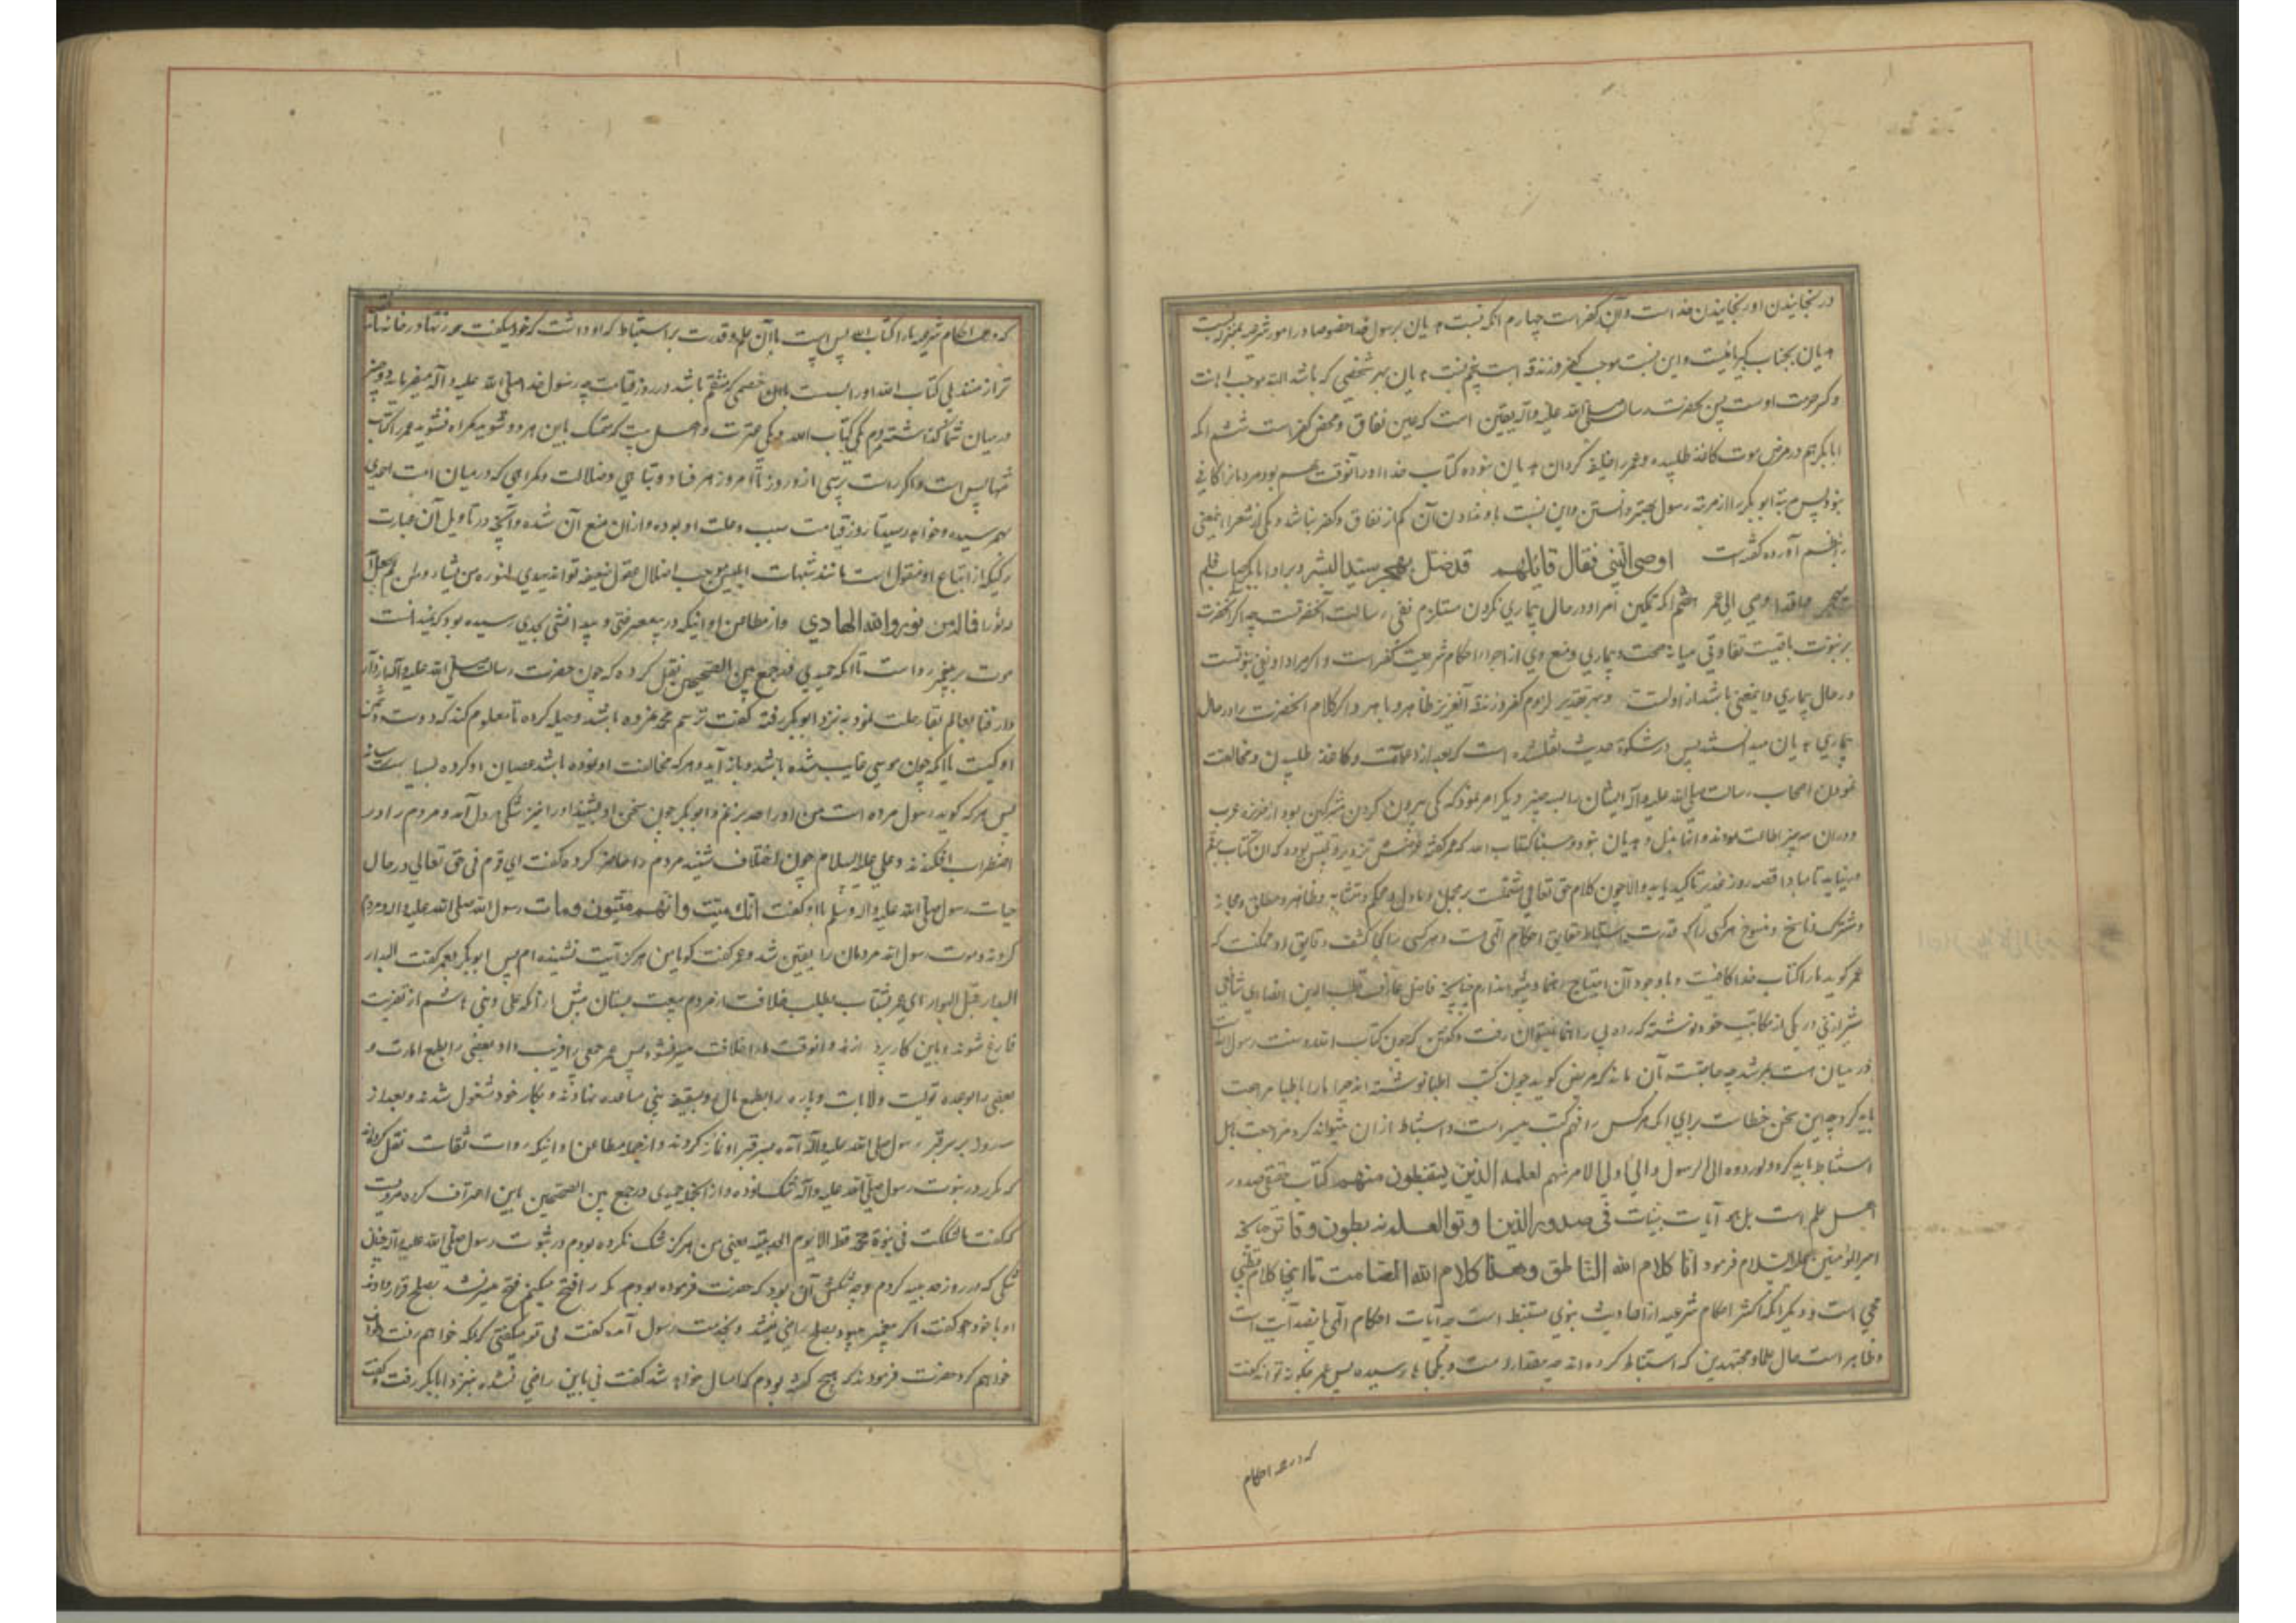 در رنجانیدن او رنجانیدن خداست و این کفر است چهارم آنکه نسبت هذیان برسول خدا خصوصا در امور شرعیه بمنزله نسبت
هذیان بجناب کبریائیست و این نسبت موجب کفر و زندقه است پنجم نسبت هذیان بهر شخصی که باشد البته موجب اهانت
و کسر حرمت اوست پس بحضرت رسالت صلی الله علیه وآله یقین است که عین نفاق و محض کفر است ششم آنکه
ابابکر هم در مرض موت کاغذ طلبیده و عمر را خلیفه کردان هذیان نبوده کتاب خدا او را آنوقت هم بود مردمانرا کافی
نبود پس مرتبه ابو بکر را از مرتبه رسول بهتر دانستن و این نسبت باو ندادن آن کم از نفاق و کفر نباشد و یکی از شعرا اینمعنی
بنظم آورده گفته است اوصی النبی فقال قائلهم قد ضل یهجر سید البشر و برا ابابکر اصاب فلم
یهجر و قد اوصی الی عمر هفتم آنکه تمکین امر او در حال بیماری نکردن مستلزم نفی رسالت آنحضرتست چه اگر آنحضرت
بر نبوت باقیست تفاوتی میانه صحت و بیماری و منع وی از اجراء احکام شریعت کفر است و اگر مراد او نفی نبوتست
در حال بیماری و اینمعنی باشد از اولست و بهر تقدیر لزوم کفر و زندقه آنغریز ظاهر و باهر و اگر کلام آنحضرت را در حال
بیماری هذیان میدانستند پس در مشکوة حدیث نقلشده است که بعد از دعا و دوات و کاغذ طلبیدن و مخالفت
نمودن اصحاب رسالت صلی الله علیه وآله ایشان را بسه چیز دیگر امر نمود که یکی بیرون کردن مشرکین بود از جزیره عرب
و در ان سه چیز اطاعت نمودند و آنها هذیان نبود و حسبنا کتاب الله که عمر گفته غرضش تزویر و تلبیس بوده که ان کتاب بقلم
در نیاید تا مبادا قصه روز غدیر تاکید یابد والا چون کلام حق تعالی مشتملست بر مجمل و ماول و محکم و متشابه و ظاهر و مطلق و مجاز
و مشترک و ناسخ و منسوخ هر کس را که قدرت استنباط حقایق احکام الهی هست و هر کس را کجا کشف دقایق او ممکنست که
عمر گوید ما را کتاب خدا کافیست و با وجود آن احتیاج براهنما و پیشوا نداریم چنانچه فاضل عارف قطب الدین انصاری شافعی
شیرازی در یکی از مکاتیب خود نوشته که راه بی راهنما نمیتوان رفت و گفتن که چون کتاب الله و سنت رسول الله
در میان است بمرشد چه حاجتست آن ماند که مریض گوید چون کتب اطبا نوشته اند چرا ما را باطبا مراجعت
باید کرد چه این سخن خطاست برای آنکه هر کس را فهم کتب میسر است و استنباط از ان نمیتواند کرد مراجعت باهل
استنباط باید کرد ولو ردوه الی الرسول والی اولی الامر منهم لعلمه الذین یستنبطون منهم کتاب حقیقی صدور
اهل علم است بل هو آیات بینات فی صدور الذین اوتوا العلم نه بطون دفاتر چنانچه
امیر المؤمنین علیه السلام فرمود انا کلام الله الناطق وهذا کلام الله الصامت تا اینجا کلام قطب
محیی است و دیگر آنکه اکثر احکام شرعیه از احادیث نبوی مستنبط است چه آیات احکام الهی پانصد آیت است
و ظاهر است حال علما و مجتهدین که استنباط کرده اند چه مقدار است و بکجاها رسیده پس عمر چگونه تواند گفت
که در همه احکام
که در همه احکام شرعیه ما را کتاب الله بس است با آن علم و قدرت بر استنباط که او داشت که خود میگفت همه زنها در خانه‌ها
ترازمنند بلی کتاب الله او را بست باین خصمی که منتقم باشد در روز قیامت چه رسول خدا صلی الله علیه و آله میفرماید دو چیز
در میان شما گذاشته‌ام یکی کتاب الله و یکی عترت و اهل بیت که متمسک باین هر دو شوید گمراه نشوید عمر را کتاب
تنها بس است و اگر راست پرسی از و روز تا امروز هر فساد و تباهی و ضلالت و گمراهی که در میان امت احمدی
بهم رسیده و خواهد رسید تا روز قیامت سبب و علت او بوده و از ان منع آن شده و آنچه در تاویل آن عبارت
رکیکه از اتباع او منقول است مانند شبهات ابلیس موجب اضلال عقول ضعیفه تواند یهدی الله لنوره من یشاء ومن لم یجعل الله
له نورا فما له من نور والله الهادی و از مطاعن او اینکه در بیمعرفتی و بیدانشی بحدی رسیده بود که نمیدانست
موت بر پیغمبر رواست تا آنکه حمیدی در جمع بین الصحیحین نقل کرده که چون حضرت رسالت صلی الله علیه وآله از دار
دار فنا بعالم بقا رحلت نمود به نزد ابوبکر رفته گفت ترسم محمد نمرده باشد و حیله کرده تا معلوم کند که دوست و دشمن
او کیست یا آنکه چون موسی غایب شده باشد و باز آید و هر که مخالفت او نموده باشد عصیان او کرده بسیاست رساند
پس هر که گوید رسول مرده است من او را حد بزنم و ابوبکر چون سخن او بشنید او را نیز شکی در دل آمد و مردم را در
اضطراب افکندند و علی علیه السلام چون اختلاف شنید مردم را حاضر کرده گفت ای قوم نه حق تعالی در حال
حیات رسول صلی الله علیه و آله وسلم با او گفت انک میت وانهم میتون ومات رسول الله صلی الله علیه و آله
کردند و موت رسول الله مردمان را یقین شد و عمر گفت گویا من هرگز آیت نشنیده ام پس ابوبکر بعمر گفت البدار
البدار قبل البوار ای عمر بشتاب بطلب خلافت از مردم بیعت بستان پیش از آنکه علی و بنی هاشم از تعزیت
فارغ شوند و باین کار پردازند و آنوقت ما را خلافت میسر نشود پس عمر جمعی را فریب داد و بعضی را بطمع امارت و
بعضی را بوعده تولیت ولایات و پاره را بطمع مال و بسقیفه بنی ساعده نهادند و بکار خود مشغول شدند و بعد از
سه روز بر سر قبر رسول صلی الله علیه وآله آمده بر سر قبر او نماز کردند و از جمله مطاعن او اینکه روات ثقات نقل کرده‌اند
که مکرر در نبوت رسول صلی الله علیه وآله شک نموده و از آنجمله حمیدی در جمع بین الصحیحین باین اعتراف کرده مرویست
که گفت ما شککت فی نبوة محمد قط الا یوم الحدیبیه یعنی من هرگز شک نکرده بودم در نبوت رسول صلی الله علیه وآله چنان
شکی که در روز حدیبیه کردم و وجه شکش آن بود که حضرت فرموده بودم مکه را فتح میکنم فتح میسر نشد بصلح قرار دادند
او با خود گفت اگر پیغمبر میبود بصلح راضی نمیشد و بخدمت رسول آمده گفت نی تو میگفتی که بمکه خواهم رفت و طواف
خواهم کرد حضرت فرمودند که هیچ گفته بودم که امسال خواهد شد گفت نی باین راضی نشده بنزد ابابکر رفت و گفت